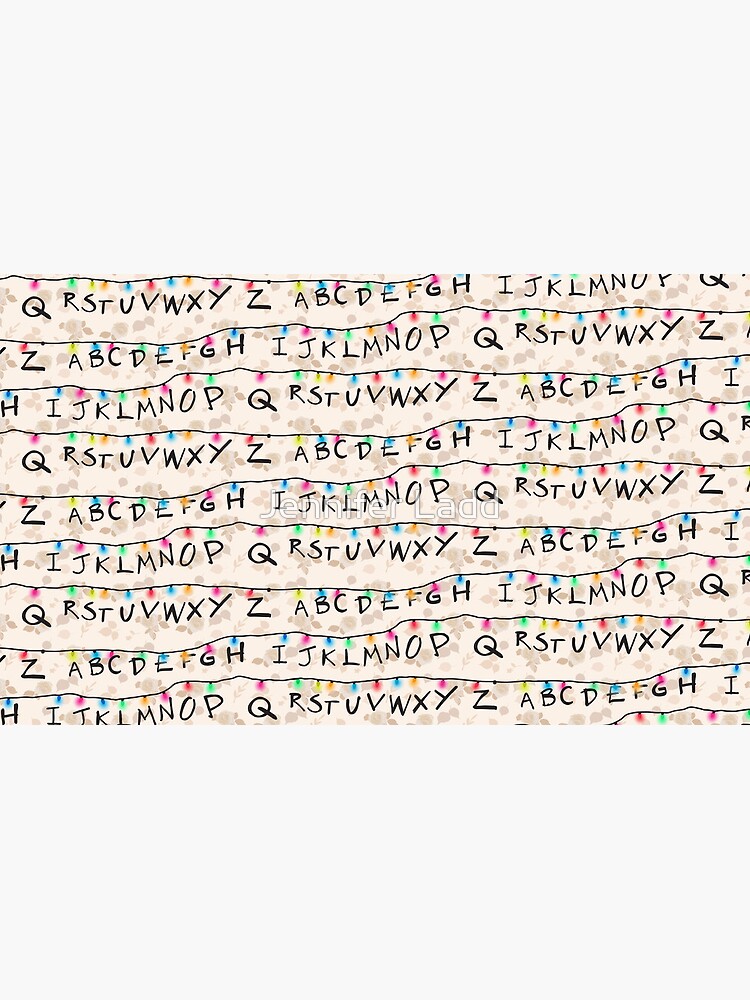 Q RSTUVWXY Z ABCDEFGH IJKLMNOP Q
Jennifer Ladd
Z ABCDEFGH IJKLMNOP Q RSTUVWXY Z
H IJKLMNOP Q RSTUVWXY Z ABCDEFGH I
Q RSTUVWXY Z ABCDEFGH IJKLMNOP Q
Z ABCDEFGH IJKLMNOP Q RSTUVWXY Z
Jennifer Ladd
H IJKLMNOP Q RSTUVWXY Z ABCDEFGH I
Q RSTUVWXY Z ABCDEFGH IJKLMNOP Q
Z ABCDEFGH IJKLMNOP Q RSTUVWXY Z
H IJKLMNOP Q RSTUVWXY Z ABCDEFGH I
Jennifer Ladd